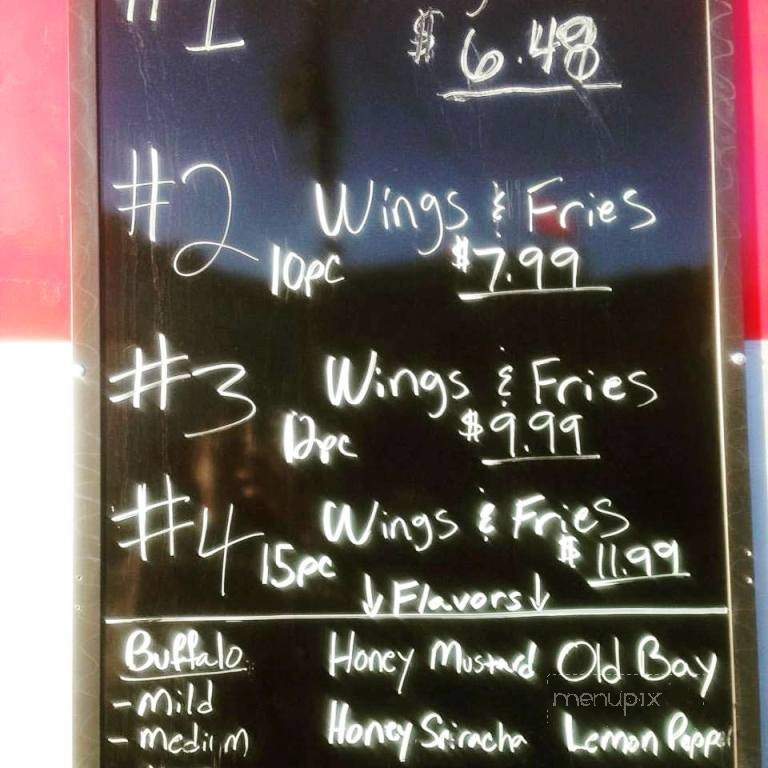 #1
$ 6.48
#2 Wings & Fries
10pc $7.99
#3 Wings & Fries
12pc $9.99
#4 Wings & Fries
15pc $11.99
↓Flavors↓
Buffalo Honey Mustard Old Bay
- Mild
menupix
- Medium Honey Sriracha Lemon Pepper